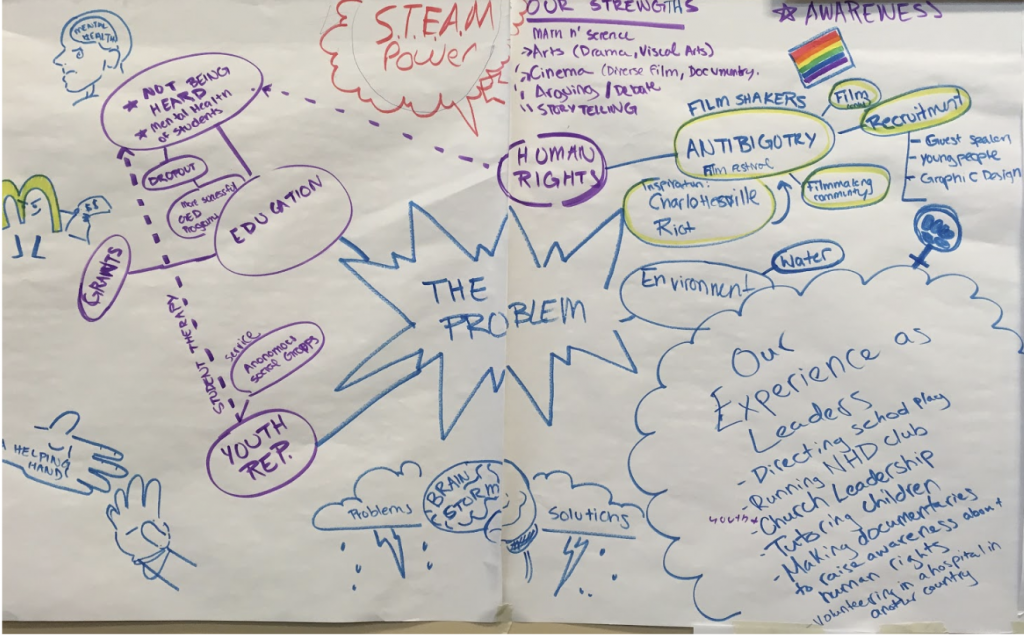 MENTAL
HEALTH
S.T.E.A.M
Power
OUR STRENGTHS
MATH n' Science
Arts (Drama, Viscal Arts)
Cinema (Diverse Film, Documuntry.
Arguing / Debate
STORYTELLING
AWARENESS
NOT BEING
HEARD
mental Health
of Students
DROPOUT
GED
EDUCATION
GRANTS
$$
STUDENT THERAPY
service
Anonomous
Social Groops
YOUTH
REP.
THE
PROBLEM
HUMAN
RIGHTS
FILM SHAKERS
ANTIBIGOTRY
Film Festival
Film
Recruitment
- Guest
- young people
- Graphic Design
Filmmaking
community
Inspiration:
Charlottesville
Riot
Environment
Water
Our
Experience as
Leaders
- Directing school play
- Running NHD club
youth
- Church Leadership
- Tutoring children
- Making documentaries
to raise awareness about
human rights
- volunteering in a hospital in
another country
A HELPING
HAND
Problems
BRAIN
STORM
Solutions